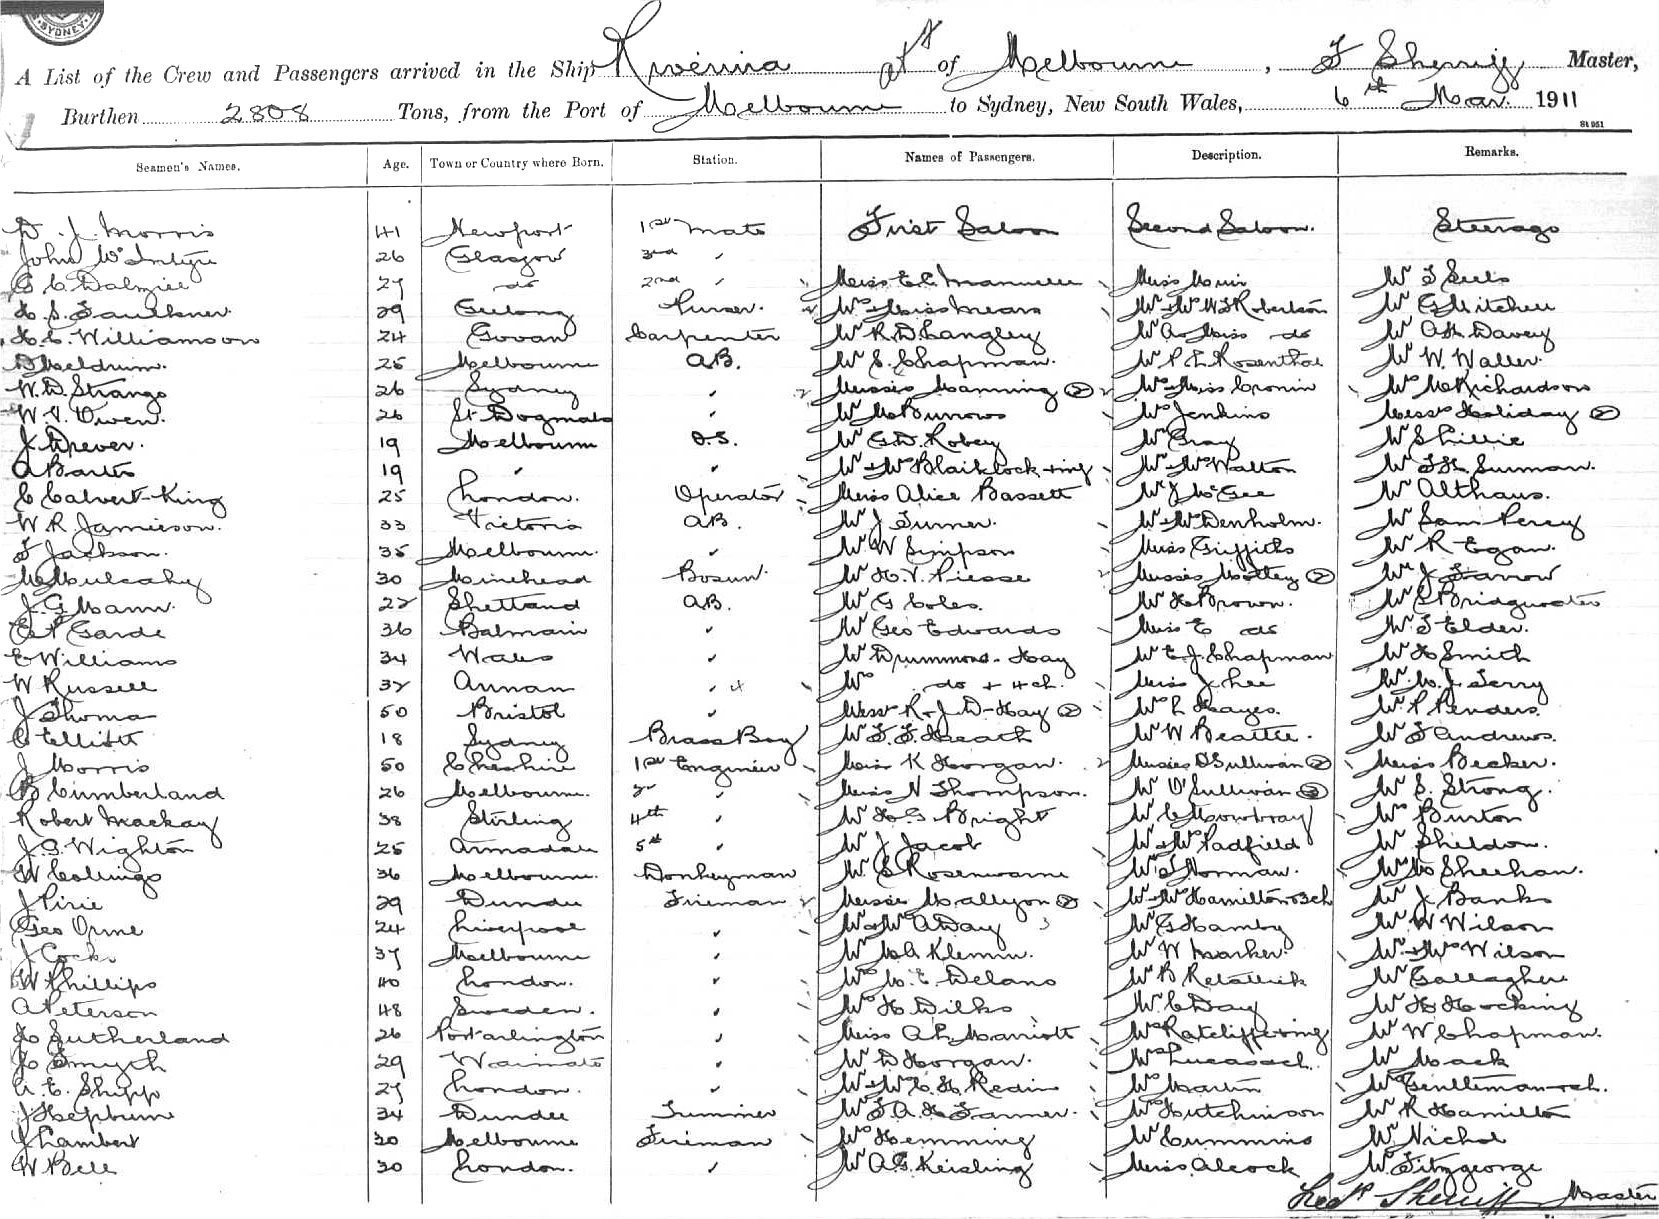 SYDNEY
A List of the Crew and Passengers arrived in the Ship Riverina of Melbourne, F Sherriff Master,
Burthen 2808 Tons, from the Port of Melbourne to Sydney, New South Wales, 6th Mar. 1911
Seamen's Names. Age. Town or Country where Born. Station. Names of Passengers. Description. Remarks.
D. J. Morris 41 Newport 1st Mate First Saloon Second Saloon. Steerage
John McIntyre 26 Glasgow 3rd "
G C Dalziel 27 do 2nd " Miss E E Manuell Miss Muir Mr T Seels
H. S. Faulkner. 29 Geelong Purser. Mrs & Miss Mears Mr & Mrs W F Robertson Mr G Mitchell
H. C. Williamson 24 Govan Carpenter Mr R. D. Langley Mr A & Miss do Mr A H Davey
D Meldrum. 25 Melbourne A.B. Mr S. Chapman. Mr P. E. Rosenthal Mr W. Waller.
W. D. Strange 26 Sydney " Misses Manning (2) Mrs & Miss Cronin Mrs McRichardson
W. V. Owen. 26 St Dogmals " Mr McBurrows Mrs Jenkins Messrs Holiday (2)
J. Drever. 19 Melbourne O.S. Mr G. D. Robey Mr Gray Mr S Lillie
A Barts 19 " " Mr & Mrs Blaiklock & inf Mr & Mrs Walton Mr F H. Surman.
C Calvert-King 25 London. Operator Miss Alice Bassett Mr J McGee Mr Althaus.
W. R. Jamieson. 33 Victoria A.B. Mr J Turner. Mr & Mrs Denholm. Mr Sam Percy
F Jackson. 35 Melbourne. " Mr W Simpson Miss Griffiths Mr R Egan.
M Mulcahy 30 Minehead Bosun Mr H. V. Piesse Misses Mottey (2) Mr J Farrow
J. G. Mann. 22 Shetland A.B. Mr G Coles. Mr H Brown. Mr E Bridgwater
E. P. Garde 36 Balmain " Mr Geo Edwards Miss E do Mr T Elder.
E Williams 34 Wales " Mr Drummond-Hay Mr E. J. Chapman Mr H Smith
W Russell 32 Annan " Mrs do + 4 ch. Miss J. Lee Mr M. J. Terry
J Thoma 50 Bristol " Messrs R & J D-Hay (2) Mrs L Hayes. Mr P Penders.
C Elliott 18 Sydney Brass Boy Mr F. F. Heath Mr W Beattie. Mr F Andrews.
J Morris 50 Cheshire 1st Engineer Miss K Horgan. Misses O'Sullivan (2) Miss Becker.
B Cumberland 26 Melbourne. 2nd " Miss N Thompson. Mr O'Sullivan (3) Mr S. Strong.
Robert Mackay 38 Stirling 4th " Mr H G Bright Mr C Mowbray Mrs Burton
J. S. Wighton 25 Armadale 5th " Mr J Jacob Mr & Mrs Padfield Mr Sheldon.
W Collings 36 Melbourne. Donkeyman Mr S Rosenwarne Mr F Norman. Mrs M Sheehan.
J Pirie 29 Dundee Fireman Misses Mallyon (2) Mr & Mrs Hamilton & 3ch Mr J Banks
Geo Orme 24 Liverpool " Mr & Mrs A Day Mr G Hamby Mr W Wilson
J Cocks 37 Melbourne " Mr McA Klemm. Mr W Marker. Mr & Mrs Wilson
W Phillips 40 London. " Mrs M. E. Delano Mr B Retallick Mr Gallagher
A Peterson 48 Sweden. " Mrs H Dilks Mr C Day Mr H Hocking
H Sutherland 26 Portarlington " Miss A. L. Marriott Mrs Ratcliffe & inf Mr W Chapman.
H Smyth 29 Waimate " Mr D Horgan. Mrs Lucas & ch. Mr Mack
A. E. Shipp 27 London. " Mr & Mrs C. H. Redin Mrs Martin Mrs Gentleman & ch.
J Hepburn 34 Dundee Trimmer Mr F. A. H Farmer. Mrs Hutchinson Mr R Hamilton
J Lambert 30 Melbourne Fireman Mrs Hemming Mr Cummins Mr Nichol
W Bell 30 London. " Mr A. G. Keisling Miss Alcock Mr Fitzgeorge
Fredk Sherriff Master